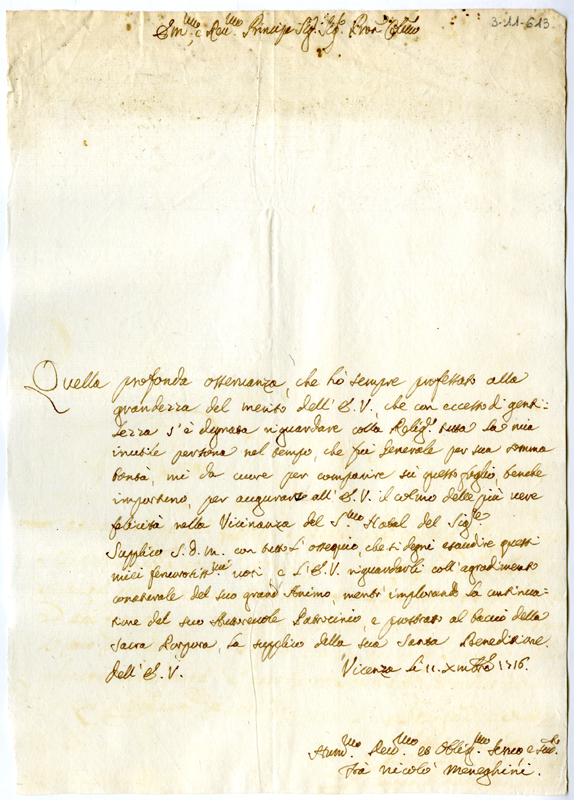 3-11-613
Em.mo e Rev.mo Principe Sig.r Sig.r Pron Col.mo
Quella profonda osservanza, che hò sempre professato alla
grandezza del merito dell'E.V., che con eccesso di genti-
lezza s'è degnata riguardare colla Relig.e tutta la mia
inutile persona nel tempo, che fui Generale per sua somma
bontà, mi dà cuore per comparire sù questo foglio, benche
importuno, per augurare all'E.V. il colmo delle più vere
felicità nella Vicinanza del S.mo Natal del Sig.re
Supplico S.D.M. con tutto l'ossequio, che si degni esaudire questi
miei feruorosiss.mi voti, e l'E.V. riguardarli coll'agradimento
conaturale del suo grand'Animo, mentr'implorando la continua-
tione del suo Autoreuole Patrocinio, e prostrato al baccio della
Sacra Porpora, la supplico della sua Santa Benedizione.
dell'E.V. Vicenza li 11. Xmbre 1716.
Hum.mo Deu.mo ed Oblig.mo Seruo e
Frà Nicolò Meneghini.